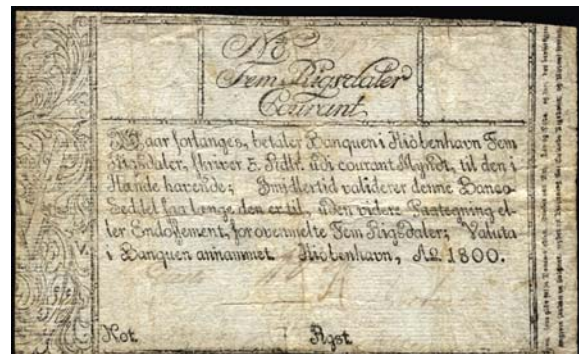 No
Fem Rigsdaler
Courant
Naar forlanges, betaler Banquen i Kiöbenhavn Fem
Rigsdaler, skriver 5. Rdlr. udi courant Myndt, til den i
Hænde havende; Imidlertid validerer denne Banco-
Seddel saa længe den er til, uden videre Paategning el-
ler Endossement, for ovenmelte Fem Rigsdaler; Valuta
i Banquen annammet. Kiöbenhavn, Ao. 1800.
Not. Agst.